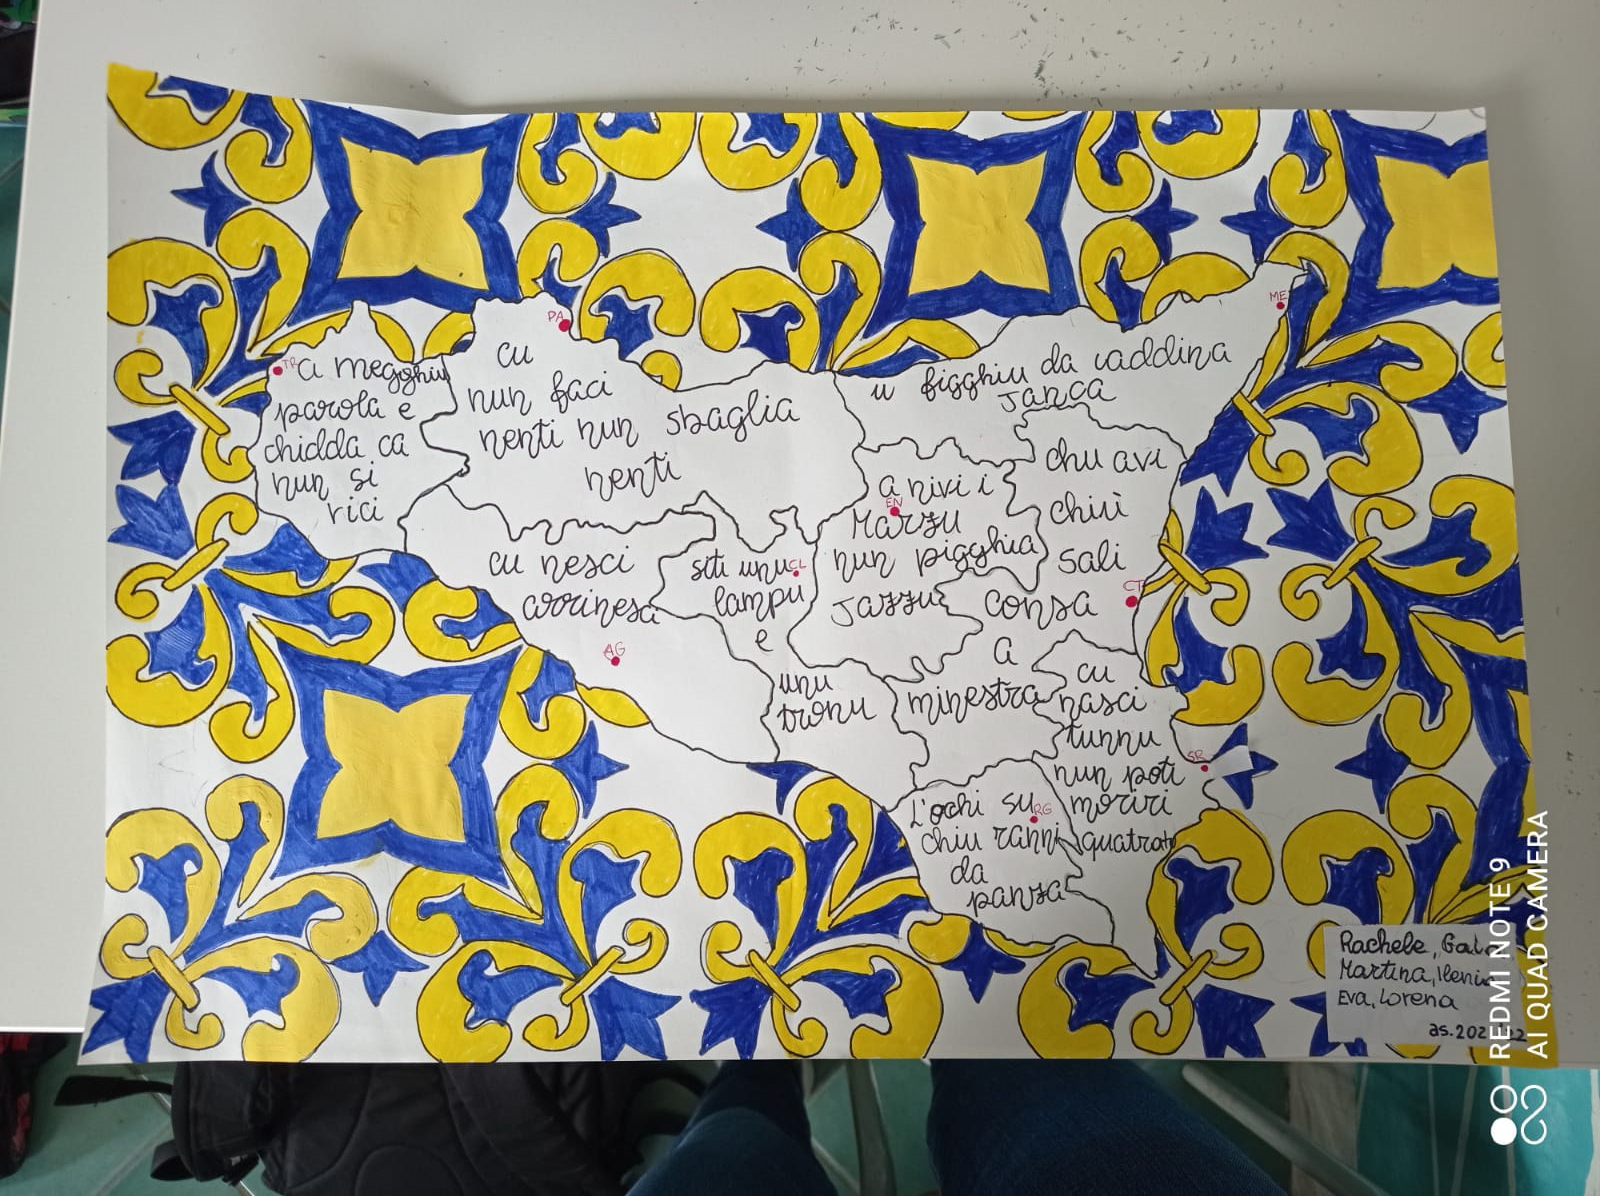 TR
a megghiu
parola e
chidda ca
nun si
rici
PA
cu
nun faci
nenti nun sbaglia
nenti
ME
u figghiu da vaddina
janca
cu nesci
arrinesci
AG
siti unu
CL
lampu
e
unu
tronu
a nivi i
EN
Marzu
nun pigghia
jazzu
chu avi
chiù
sali
CT
consa
a
minestra
cu
nasci
tunnu
nun poti
SR
moriri
quatrato
L'ochi su
RG
chiu ranni
da
panza
Rachele,
Martina, Ilenia
Eva, Lorena
REDMI NOTE 9
AI QUAD CAMERA